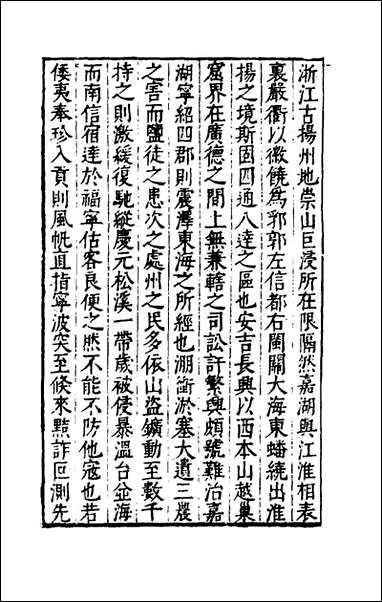 浙江古揚州地崇山巨浸所在限隔然嘉湖與江淮相表
裏嚴衢以徽饒爲郛郭左信都右閩關大海東蟠繞出淮
揚之境斯固四通八達之區也安吉長興以西本山越巢
窟界在廣德之間上無兼轄之司訟訐繁興頗號難治嘉
湖寧紹四郡則震澤東海之所經也湖衝淤塞大遺三農
之害而鹽徒之患次之處州之民多依山盜鑛動至數千
持之則激緩復馳縱慶元松溪一帶歲被侵暴溫台並海
而南信宿達於福寧估客良便之然不能不防他寇也若
倭夷奉珍入貢則風帆直指寧波突至倏來黠詐叵測先